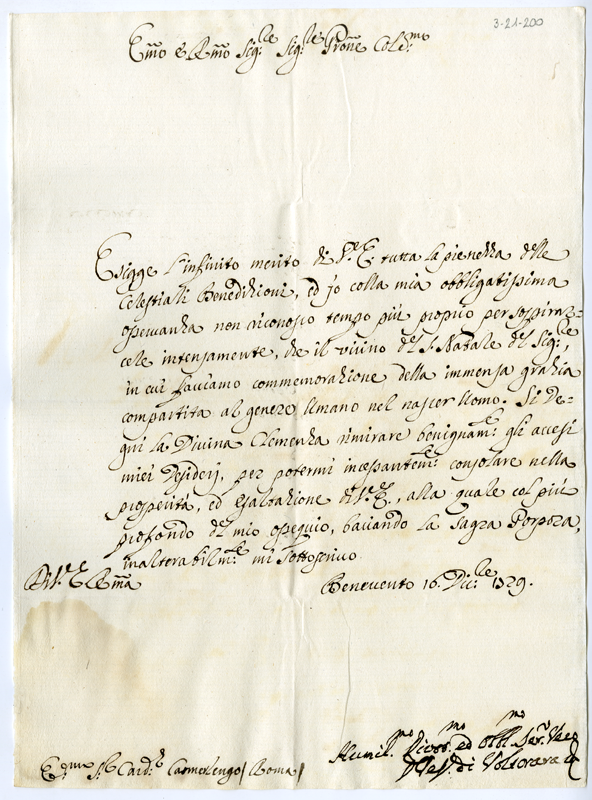 3-21-200
Emo e Rmo Sig.le Sig.le Prone Colmo
Esigge l'infinito merito di V.E. tutta la pienezza delle
Celestiali Benedizioni, ed Jo colla mia obbligatissima
osservanza non riconosco tempo più proprio per sospiraz=
cele intensamente, che il vicino del S. Natale del Sig.re,
in cui facciamo commemorazione della immensa grazia
compartita al genere Umano nel nascer Uomo. Si De=
gni La Divina Clemenza rimirare benignam.te gli accesi
miei Desiderij, per potermi incessantem.te consolare nella
prosperità, ed Esaltazione di V.E., alla quale col più
profondo del mio ossequio, baciando la Sagra Porpora,
inalterabilm.te mi Sottoscrivo
Di V.E. Rma
Benevento 16. Dic.le 1729.
Humil.mo Divot.mo ed obbl.mo Ser.re
di Volto
E.mo S.r Card.l Camerlengo / Roma /